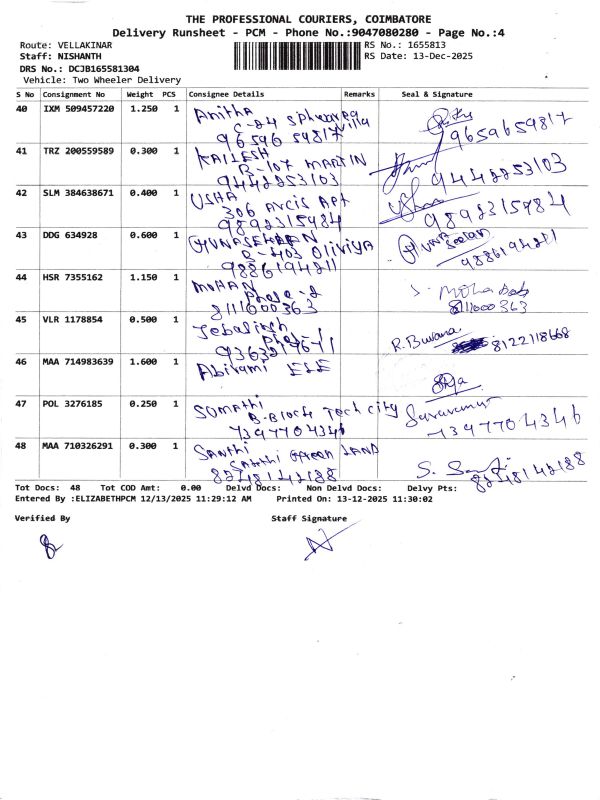 THE PROFESSIONAL COURIERS, COIMBATORE
Delivery Runsheet - PCM - Phone No.:9047080280 - Page No.:4
Route: VELLAKINAR
RS No.: 1655813
Staff: NISHANTH
RS Date: 13-Dec-2025
DRS No.: DCJB165581304
Vehicle: Two Wheeler Delivery
S No Consignment No Weight PCS Consignee Details Remarks Seal & Signature
40 IXM 509457220 1.250 1 Anitha
C-24 villa
9659659817 9659659817
41 TRZ 200559589 0.300 1 KAILESH
B-107 MARTIN
9442253103 9442253103
42 SLM 384638671 0.400 1 USHA
306 Arcis Apt
9892315984 9892315984
43 DDG 634928 0.600 1 GUNASEKARAN
B-403 Oliviya
9886194211 9886194211
44 HSR 7355162 1.150 1 MOHAN
Phase-2
8111000363 8111000363
45 VLR 1178854 0.500 1 Jebasingh R. Buvana
8122118668
46 MAA 714983639 1.600 1 Abirami ESE
47 POL 3276185 0.250 1 SUMATHI
B-Block Tech city Saravanan
7397704346 7397704346
48 MAA 710326291 0.300 1 SANTHI
Sakthi Green LAND
8248142188 8248142188
Tot Docs: 48 Tot COD Amt: 0.00 Delvd Docs: Non Delvd Docs: Delvy Pts:
Entered By :ELIZABETHPCM 12/13/2025 11:29:12 AM Printed On: 13-12-2025 11:30:02
Verified By Staff Signature